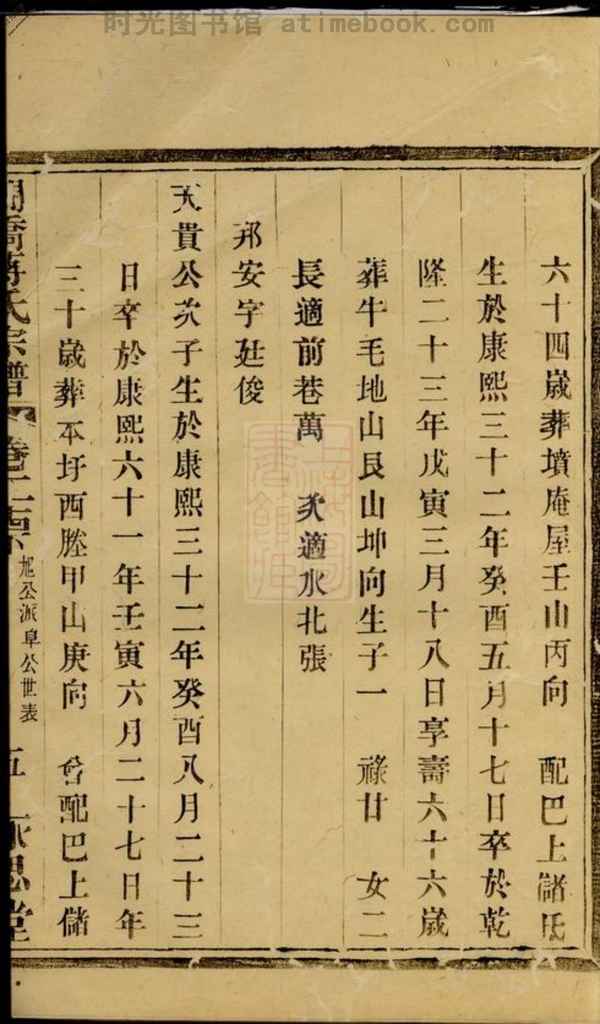 时光图书馆 atimebook.com
六十四歲葬墳庵屋壬山丙向 配巴上儲氏
生於康熙三十二年癸酉五月十七日卒於乾
隆二十三年戊寅三月十八日享壽六十六歲
葬牛毛地山艮山坤向生子一 祿廿 女二
長適前巷萬 次適水北張
邦安字廷俊
天貴公次子生於康熙三十二年癸酉八月二十三
日卒於康熙六十一年壬寅六月二十七日年
三十歲葬本圩西塍甲山庚向 曾配巴上儲
蔣氏宗譜 旭公派阜公世表 五 思堂